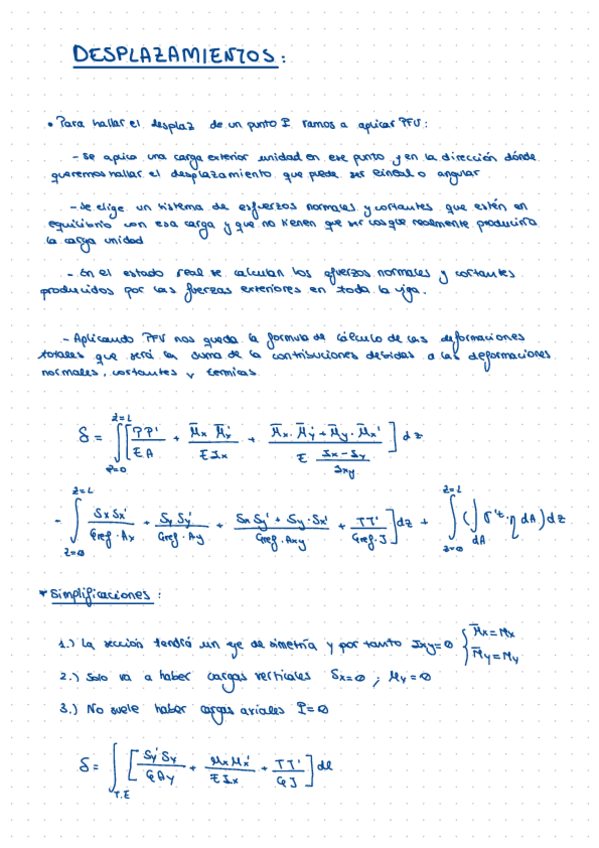 DESPLAZAMIENTOS:
• Para hallar el desplaz de un punto P vamos a aplicar PFV:
- Se aplica una carga exterior unidad en ese punto y en la dirección dónde
queremos hallar el desplazamiento que puede ser lineal o angular
- Se elige un sistema de esfuerzos normales y cortantes que estén en
equilibrio con esa carga y que no tienen que ser los que realmente produciría
la carga unidad
- En el estado real se calculan los esfuerzos normales y cortantes
producidos por las fuerzas exteriores en toda la viga.
- Aplicando PFV nos queda la formula de cálculo de las deformaciones
totales que será la suma de la contribuciones debidas a las deformaciones
normales, cortantes y termicas
δ = ∫_{z=0}^{z=L} [ PP'/EA + M̄x M̄x'/EIx + (M̄x·M̄y' + M̄y·M̄x')/(E (Ix-Iy)/Ixy) ] dz
- ∫_{z=0}^{z=L} SxSx'/(Gref·Ax) + SySy'/(Gref·Ay) + (SxSy' + Sy·Sx')/(Gref·Axy) + TT'/(Gref·J) ] dz + ∫_{z=0}^{z=L} (∫_{dA} σ'z·η dA) dz
* Simplificaciones:
1.) La sección tendrá un eje de simetría y por tanto Ixy=0 { M̄x = Mx
M̄y = My
2.) Solo va a haber cargas verticales Sx=0 ; My=0
3.) No suele haber cargas axiales P=0
δ = ∫_{T.E} [ Sy'Sy/GAy + MxMx'/EIx + TT'/GJ ] dl